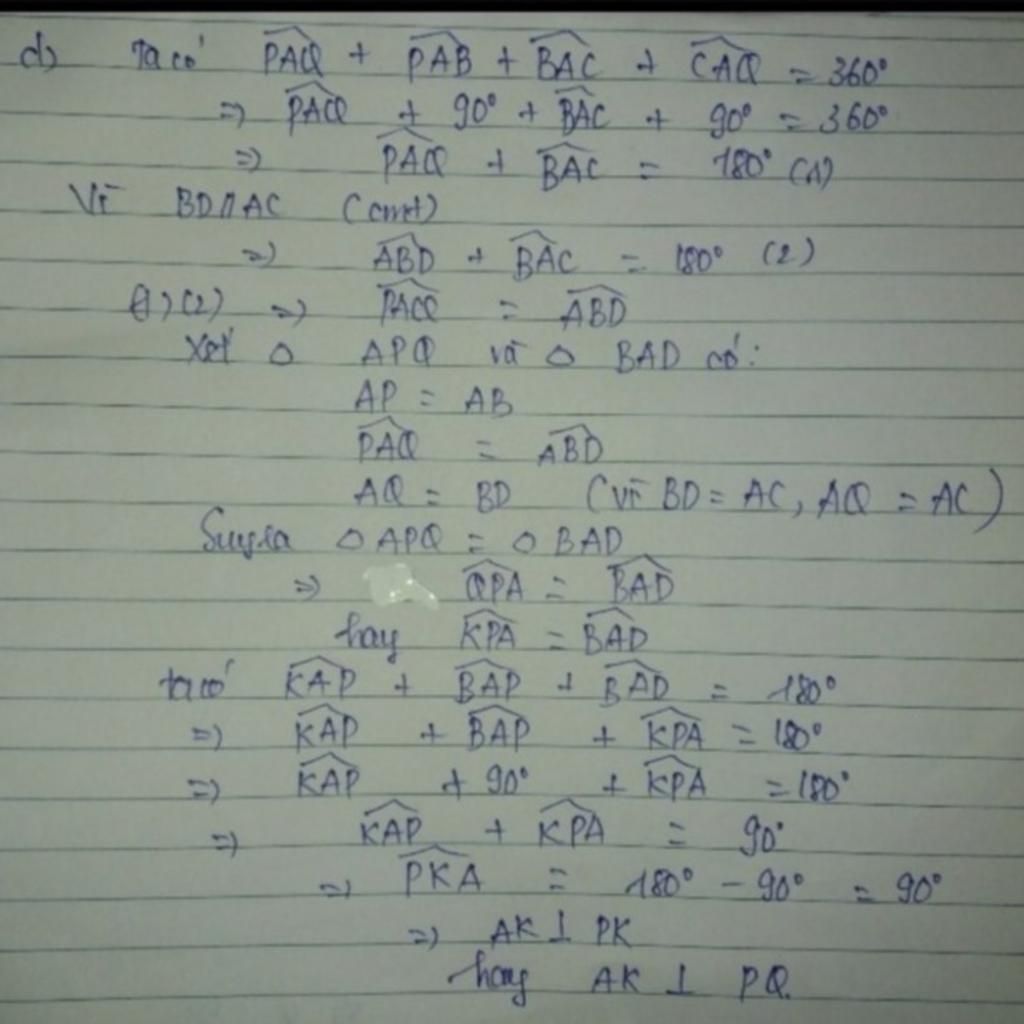 d) Ta có PAQ + PAB + BAC + CAQ = 360°
=> PAQ + 90° + BAC + 90° = 360°
=> PAQ + BAC = 180° (1)
Vì BD // AC (cmt)
=> ABD + BAC = 180° (2)
(1)(2) => PAQ = ABD
Xét △ APQ và △ BAD có:
AP = AB
PAQ = ABD
AQ = BD (vì BD = AC, AQ = AC)
Suy ra △ APQ = △ BAD
=> QPA = BAD
hay KPA = BAD
ta có KAP + BAP + BAD = 180°
=> KAP + BAP + KPA = 180°
=> KAP + 90° + KPA = 180°
=> KAP + KPA = 90°
=> PKA = 180° - 90° = 90°
=> AK ⊥ PK
hay AK ⊥ PQ.